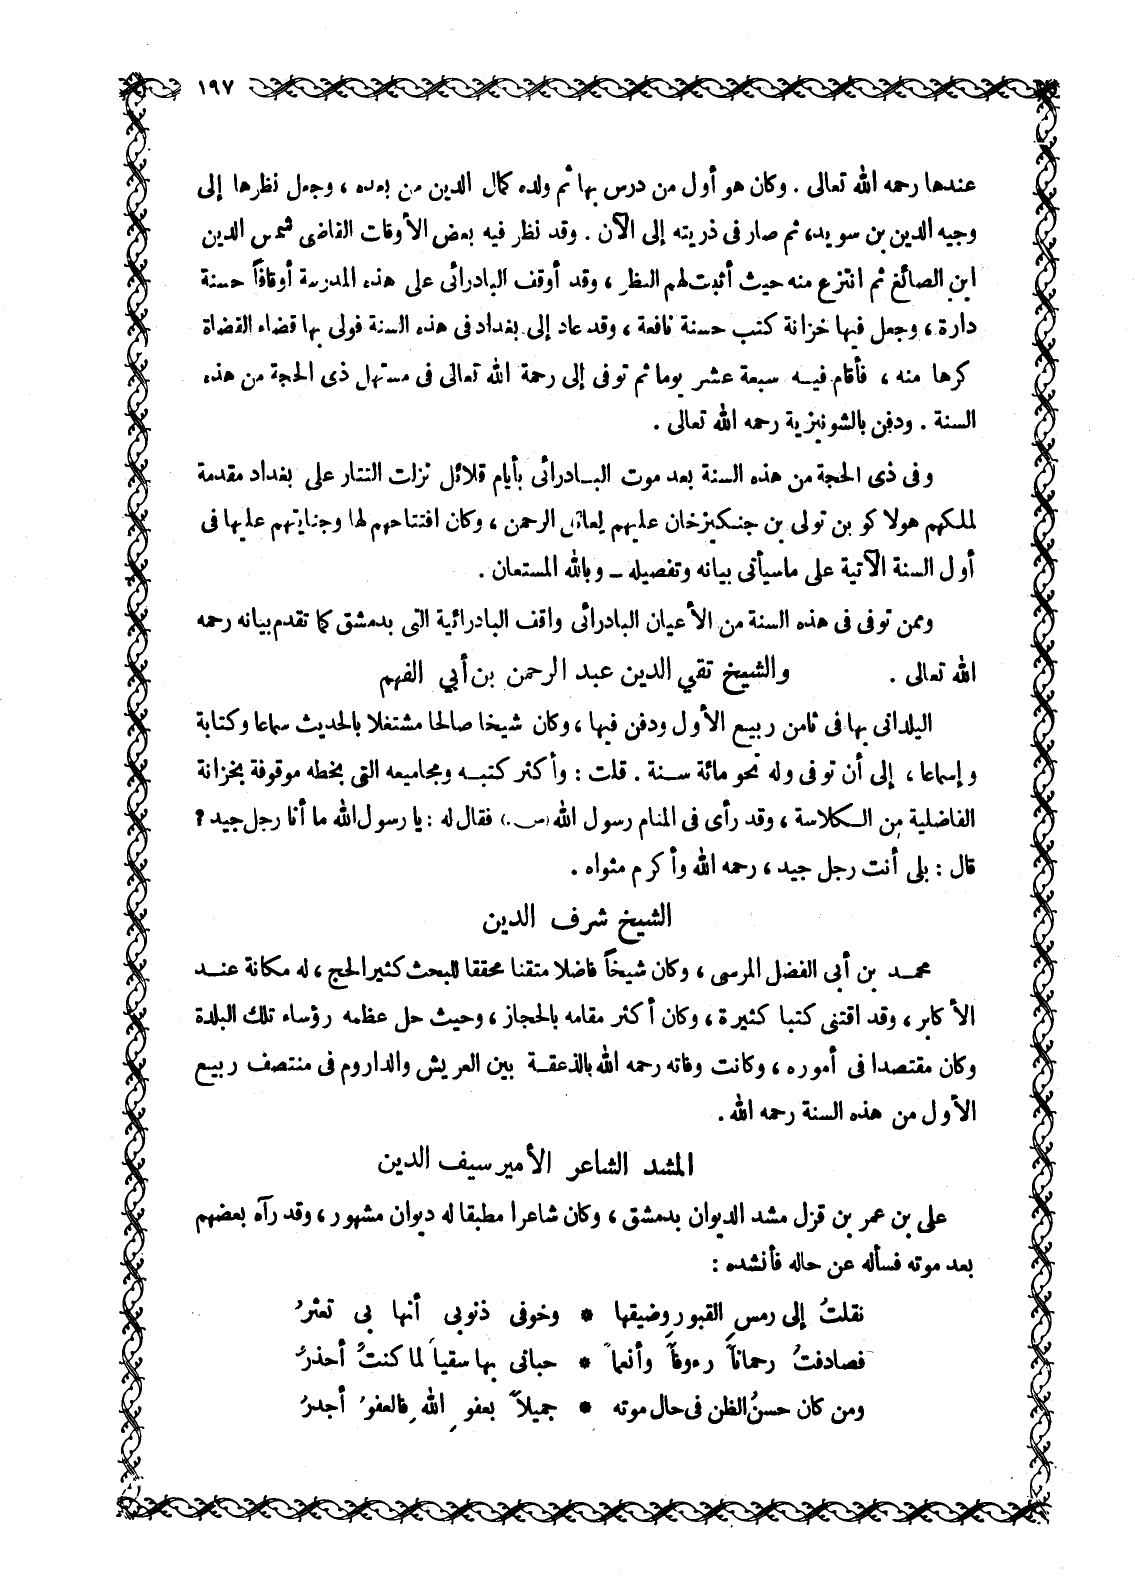 ١٩٧
عندها رحمه الله تعالى . وكان هو أول من درس بها ثم ولده كمال الدين من بعده ، وجعل نظرها إلى
وجيه الدين بن سويد، ثم صار فى ذريته إلى الآن . وقد نظر فيه بعض الأوقات القاضى شمس الدين
ابن الصائغ ثم انتزع منه حيث أثبت لهم النظر ، وقد أوقف البادرائى على هذه المدرسة أوقافاً حسنة
دارة ، وجعل فيها خزانة كتب حسنة نافعة ، وقد عاد إلى بغداد فى هذه السنة فولى بها قضاء القضاة
كرها منه ، فأقام فيه سبعة عشر يوما ثم توفى إلى رحمة الله تعالى فى مستهل ذى الحجة من هذه
السنة . ودفن بالشونيزية رحمه الله تعالى .
وفى ذى الحجة من هذه السنة بعد موت البادرائى بأيام قلائل نزلت التتار على بغداد مقدمة
لملكهم هولا كو بن تولى بن جنكيزخان عليهم لعائن الرحمن ، وكان افتتاحهم لها وجنايتهم عليها فى
أول السنة الآتية على ماسيأتى بيانه وتفصيله ـ وبالله المستعان .
وممن توفى فى هذه السنة من الأعيان البادرائى واقف البادرائية التى بدمشق كما تقدم بيانه رحمه
الله تعالى . والشيخ تقي الدين عبد الرحمن بن أبي الفهم
اليلدانى بها فى ثامن ربيع الأول ودفن فيها ، وكان شيخا صالحا مشتغلا بالحديث سماعا وكتابة
وإسماعا ، إلى أن توفى وله نحو مائة سنة . قلت : وأكثر كتبه ومجاميعه التى بخطه موقوفة بخزانة
الفاضلية من الكلاسة ، وقد رأى فى المنام رسول الله (ص.) فقال له : يا رسول الله ما أنا رجل جيد ؟
قال : بلى أنت رجل جيد ، رحمه الله وأكرم مثواه .
الشيخ شرف الدين
محمد بن أبى الفضل المرسى ، وكان شيخاً فاضلا متقنا محققا للبحث كثير الحج ، له مكانة عند
الأكابر ، وقد اقتنى كتبا كثيرة ، وكان أكثر مقامه بالحجاز ، وحيث حل عظمه رؤساء تلك البلدة
وكان مقتصدا فى أموره ، وكانت وفاته رحمه الله بالذعقة بين العريش والداروم فى منتصف ربيع
الأول من هذه السنة رحمه الله .
المشد الشاعر الأمير سيف الدين
على بن عمر بن قزل مشد الديوان بدمشق ، وكان شاعرا مطبقا له ديوان مشهور ، وقد رآه بعضهم
بعد موته فسأله عن حاله فأنشده :
نقلتُ إلى رمسِ القبورِ وضيقها * وخوفى ذنوبى أنها بى تعثرُ
فصادفتُ رحماناً رءوفاً وأنعماً * حبانى بها سقياً لما كنتُ أحذرُ
ومن كان حسنُ الظن فى حال موته * جميلاً بعفوِ اللهِ فالعفوُ أجدرُ